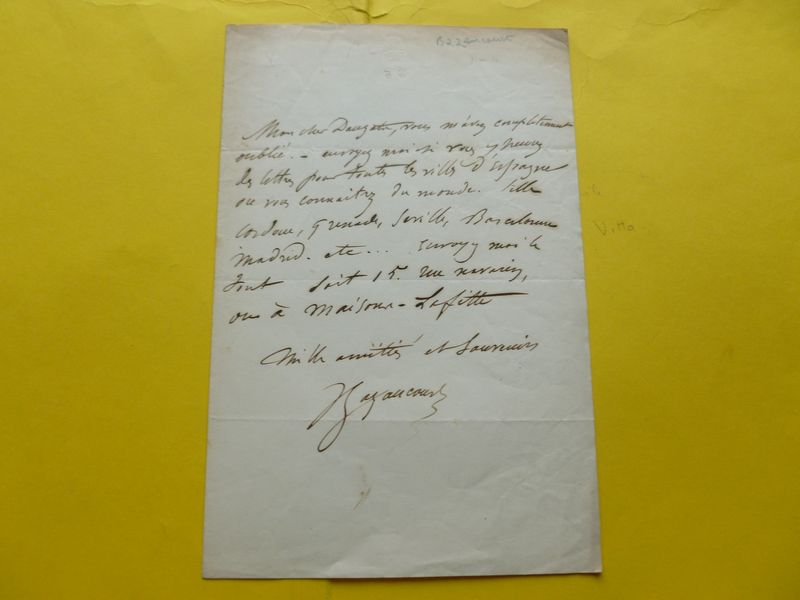 Bazancourt
Mon cher Dauzats, vous m'avez complètement
oublié. - envoyez moi si vous y pensez
des lettres pour toutes les villes d'Espagne
ou vous connaitrez du monde.
cordoue, grenade, Séville, Barcelonne
madrid. etc... Envoyez moi le
tout soit 15. rue navarin,
ou à Maisons-Lafitte
Mille amitiés et Souvenirs
Bazancourt
Villa